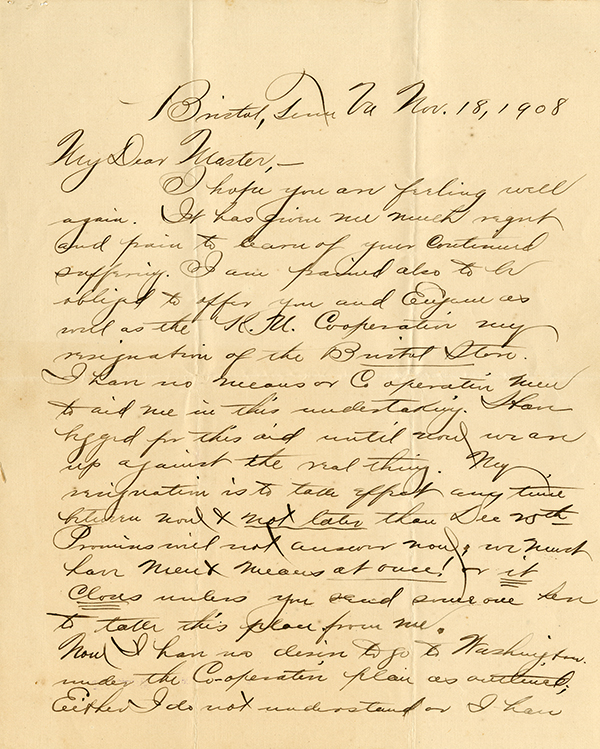 Bristol, Tenn Va Nov. 18, 1908
My Dear Master,—
I hope you are feeling well
again. It has given me much regret
and pain to learn of your continued
suffering. I am pained also to be
obliged to offer you and Eugene as
well as the K. U. Cooperation my
resignation of the Bristol Store.
I have no means or Cooperation men
to aid me in this undertaking. I have
begged for this aid until now we are
up against the real thing. My
resignation is to take effect any time
between now & not later than Dec 25th
Promises will not answer now; we must
have Men & Means at once! or it
Closes unless you send some one here
to take this place from me.
Now I have no desire to go to Washington
under the Co-operative plan as outlined;
Either I do not understand or I have